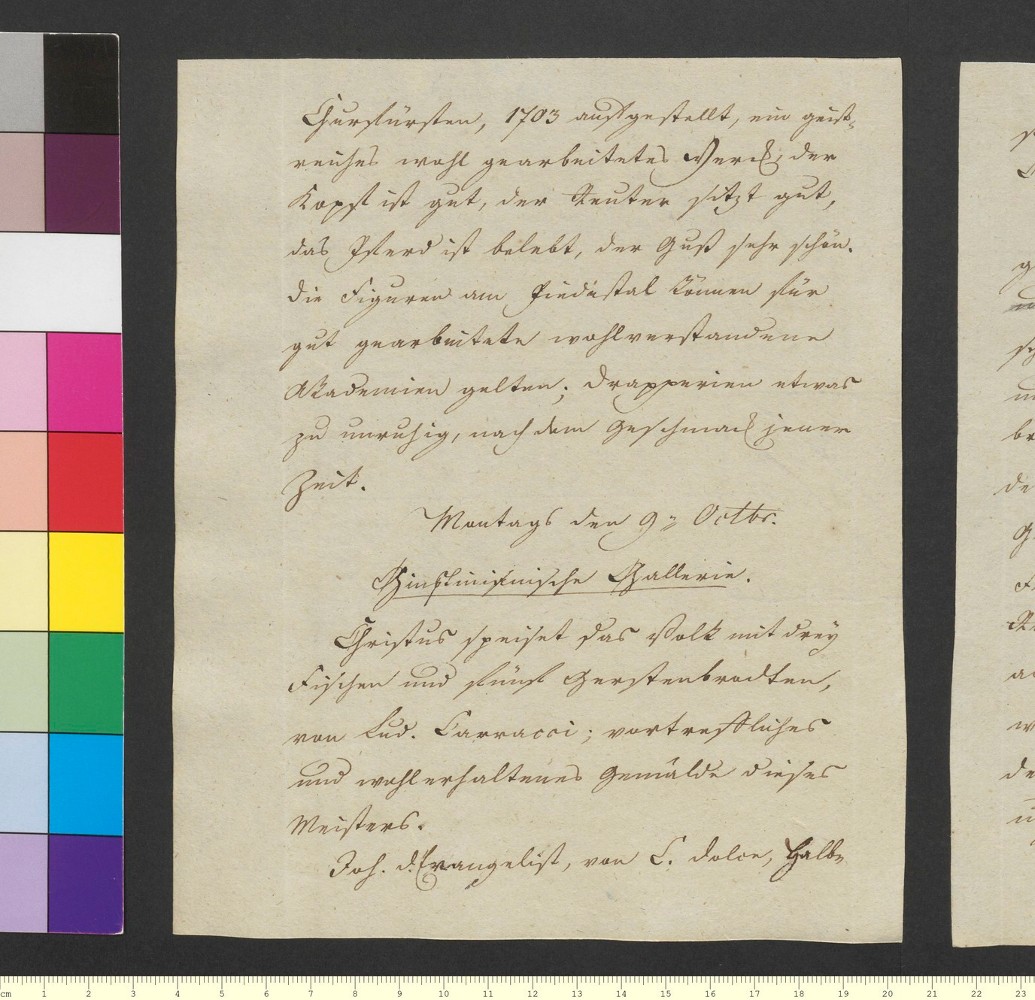 Churfürsten, 1703 aufgestellt, ein geist-
reiches wohl gearbeitetes Werck; der
Kopf ist gut, der Reuter sitzt gut,
das Pferd ist belebt, der Guß sehr schön.
die Figuren am Piedestal können für
gut gearbeitete wohlverstandene
Akademien gelten; Drapperien etwas
zu unruhig, nach dem Geschmack jener
Zeit.
Montags den 9n Octbr.
Giustinianische Gallerie.
Christus speiset das Volk mit drey
Fischen und fünf Gerstenbrodten,
von Lud. Carracci; vortreffliches
und wohlerhaltenes Gemälde dieses
Meisters.
Joh. d. Evangelist, von C. Dolce, Halbe
cm 1 2 3 4 5 6 7 8 9 10 11 12 13 14 15 16 17 18 19 20 21 22 23